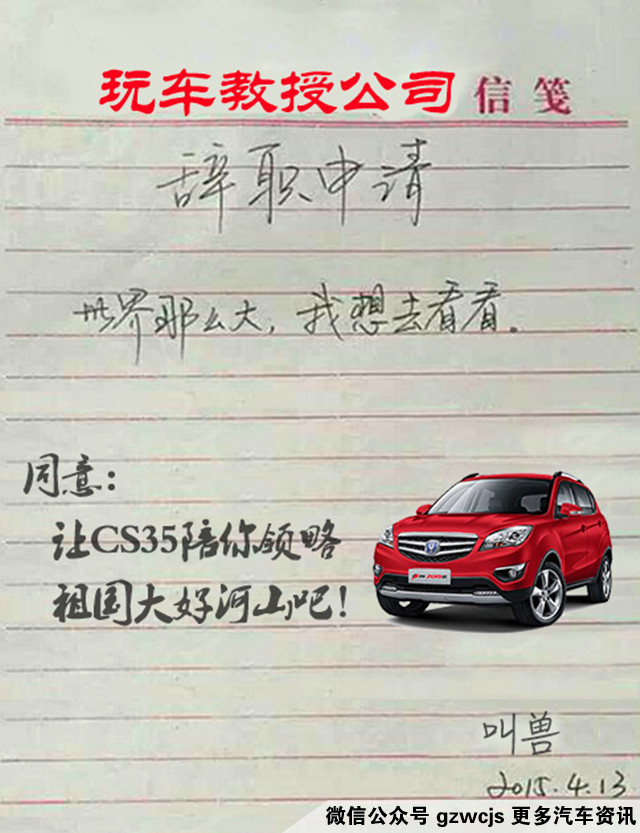 玩车教授公司 信笺
辞职申请
世界那么大，我想去看看。
同意：
让CS35陪你领略
祖国大好河山吧！
叫兽
2015.4.13
微信公众号 gzwcjs 更多汽车资讯